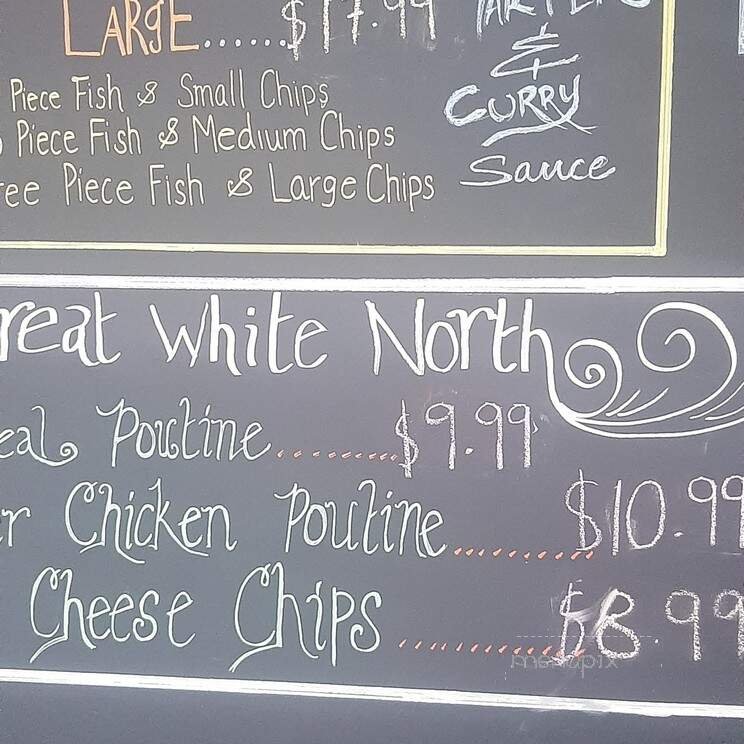 LARGE......$17.99
Piece Fish & Small Chips
Piece Fish & Medium Chips
ree Piece Fish & Large Chips
&
CURRY
Sauce
reat White North
eal Poutine.........$9.99
er Chicken Poutine.........$10.99
Cheese Chips............$8.99
menupix